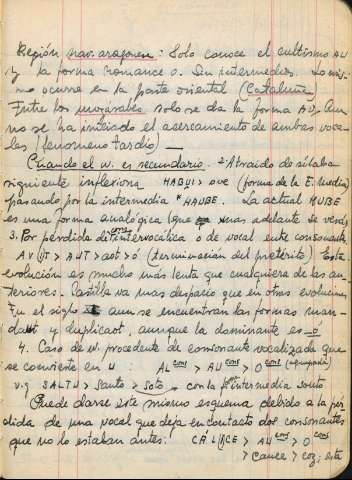 Región nav. aragonesa: Solo conoce el cultismo AU
y la forma romance o. Sin intermedios. Lo mis-
mo ocurre en la parte oriental (Cataluña)
Entre los mozárabes solo se da la forma AU. Aun
no se ha iniciado el acercamiento de ambas voca-
les (fenomeno tardío) —
Cuando el w. es secundario. 2 Atraido de sílaba
siguiente inflexiona HABUI > ove (forma de la E. media)
pasando por la intermedia *HAUBE. La actual HUBE
es una forma analógica (que mas adelante se verá)
3. Por pérdida de cons intervocálica o de vocal entre consonante
AVUT > AUT > aot > ó (terminación del pretérito) Esta
evolución es mucho más lenta que cualquiera de las an-
teriores. Castilla va mas despacio que en otras evoluciones
En el siglo aun se encuentran las formas man-
daut y duplicaot, aunque la dominante es -o
4. Caso de w. procedente de consonante vocalizada que
se convierte en u : AL cons > AU cons > O cons
v.g SALTU > Sauto > Soto, con la intermedia souto
Puede darse este mismo esquema debido a la pér-
dida de una vocal que deja en contacto dos consonantes
que no lo estaban antes: CALICE > AU cons > O cons
> cauce > coz; este